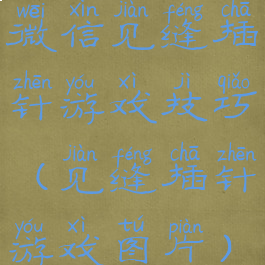 wēi xìn jiàn féng chā
微信见缝插
zhēn yóu xì jì qiǎo
针游戏技巧
jiàn féng chā zhēn
（见缝插针
yóu xì tú piàn
游戏图片）